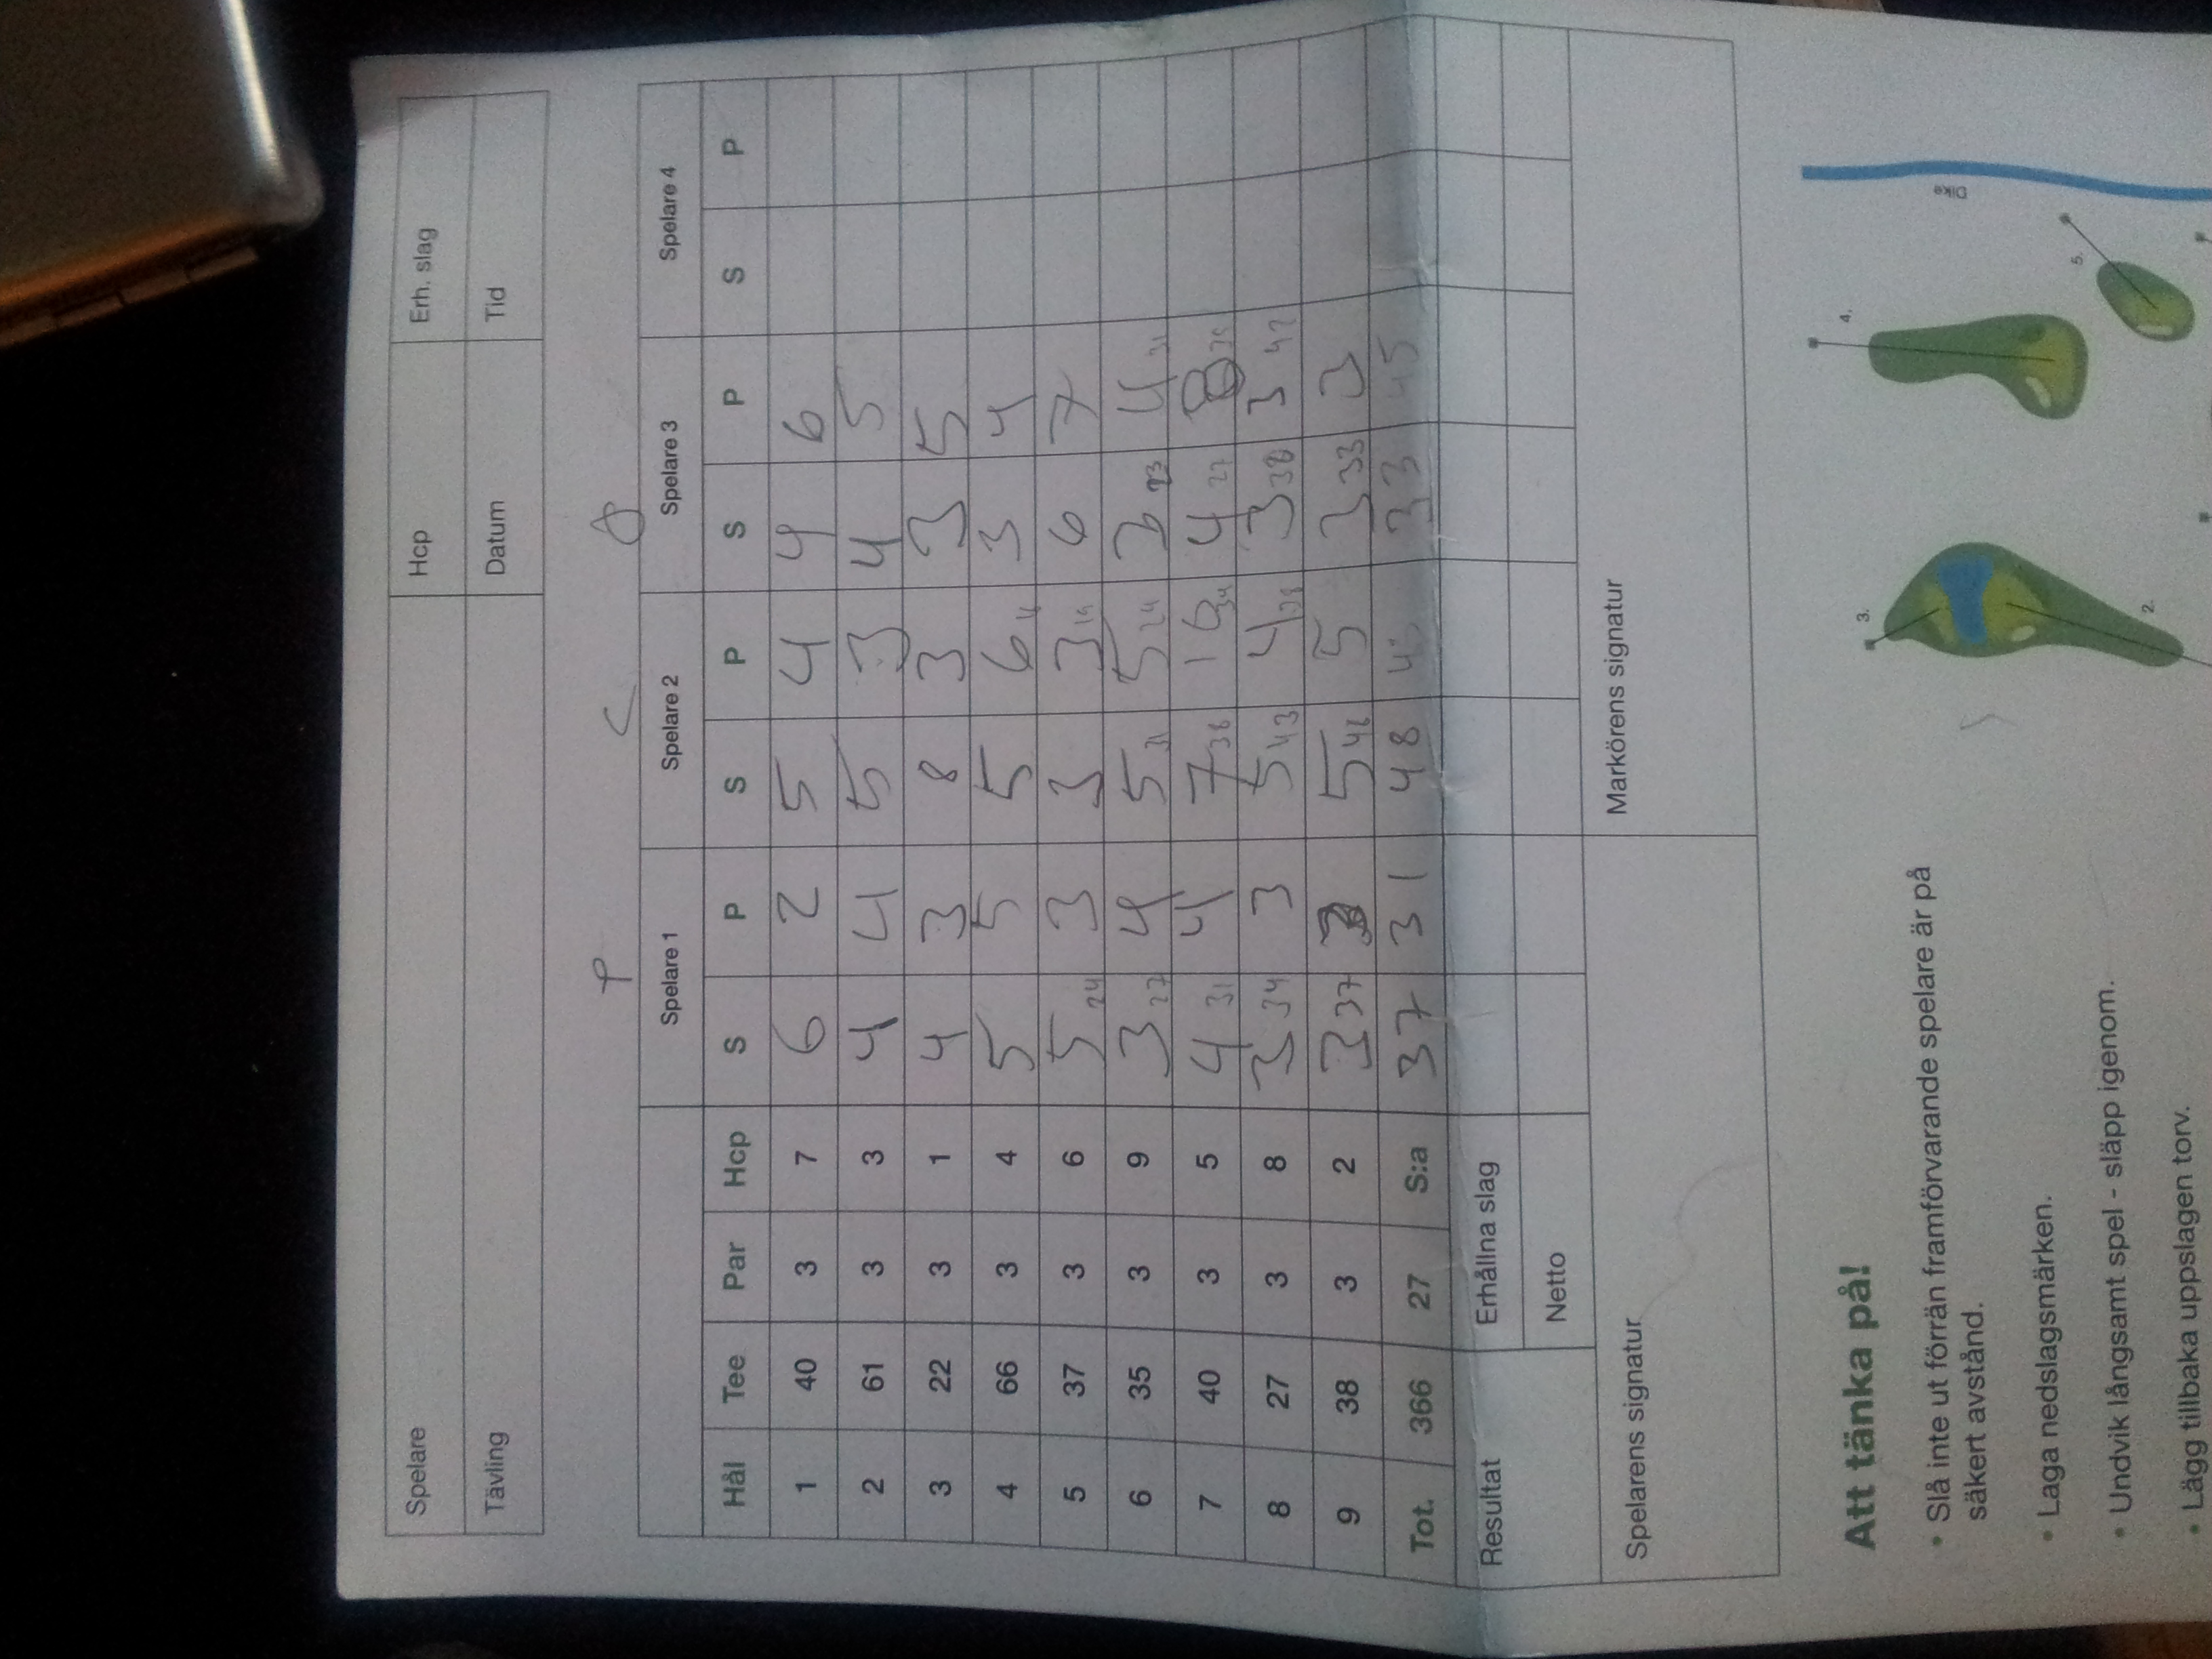 Spelare Hcp Erh. slag
Tävling Datum Tid
P C O
Spelare 1 Spelare 2 Spelare 3 Spelare 4
Hål Tee Par Hcp S P S P S P S P
1 40 3 7 6 2 5 4 4 6
2 61 3 3 4 4 5 3 4 5
3 22 3 1 4 3 8 3 3 5
4 66 3 4 5 5 5 6 3 4
5 37 3 6 5 24 3 3 3 19 6 7
6 35 3 9 3 27 4 5 31 5 24 3 23 4 31
7 40 3 5 4 31 4 7 38 4 27 8
8 27 3 8 3 34 3 5 43 4 38 3 30 3 42
9 38 3 2 3 37 3 5 48 5 3 33 3
Tot. 366 27 S:a 37 31 48 33 45
Resultat Erhållna slag
Netto
Spelarens signatur Markörens signatur
Att tänka på!
• Slå inte ut förrän framförvarande spelare är på
säkert avstånd.
• Laga nedslagsmärken.
• Undvik långsamt spel - släpp igenom.
• Lägg tillbaka uppslagen torv.
3.
2.
4.
5.
Dike